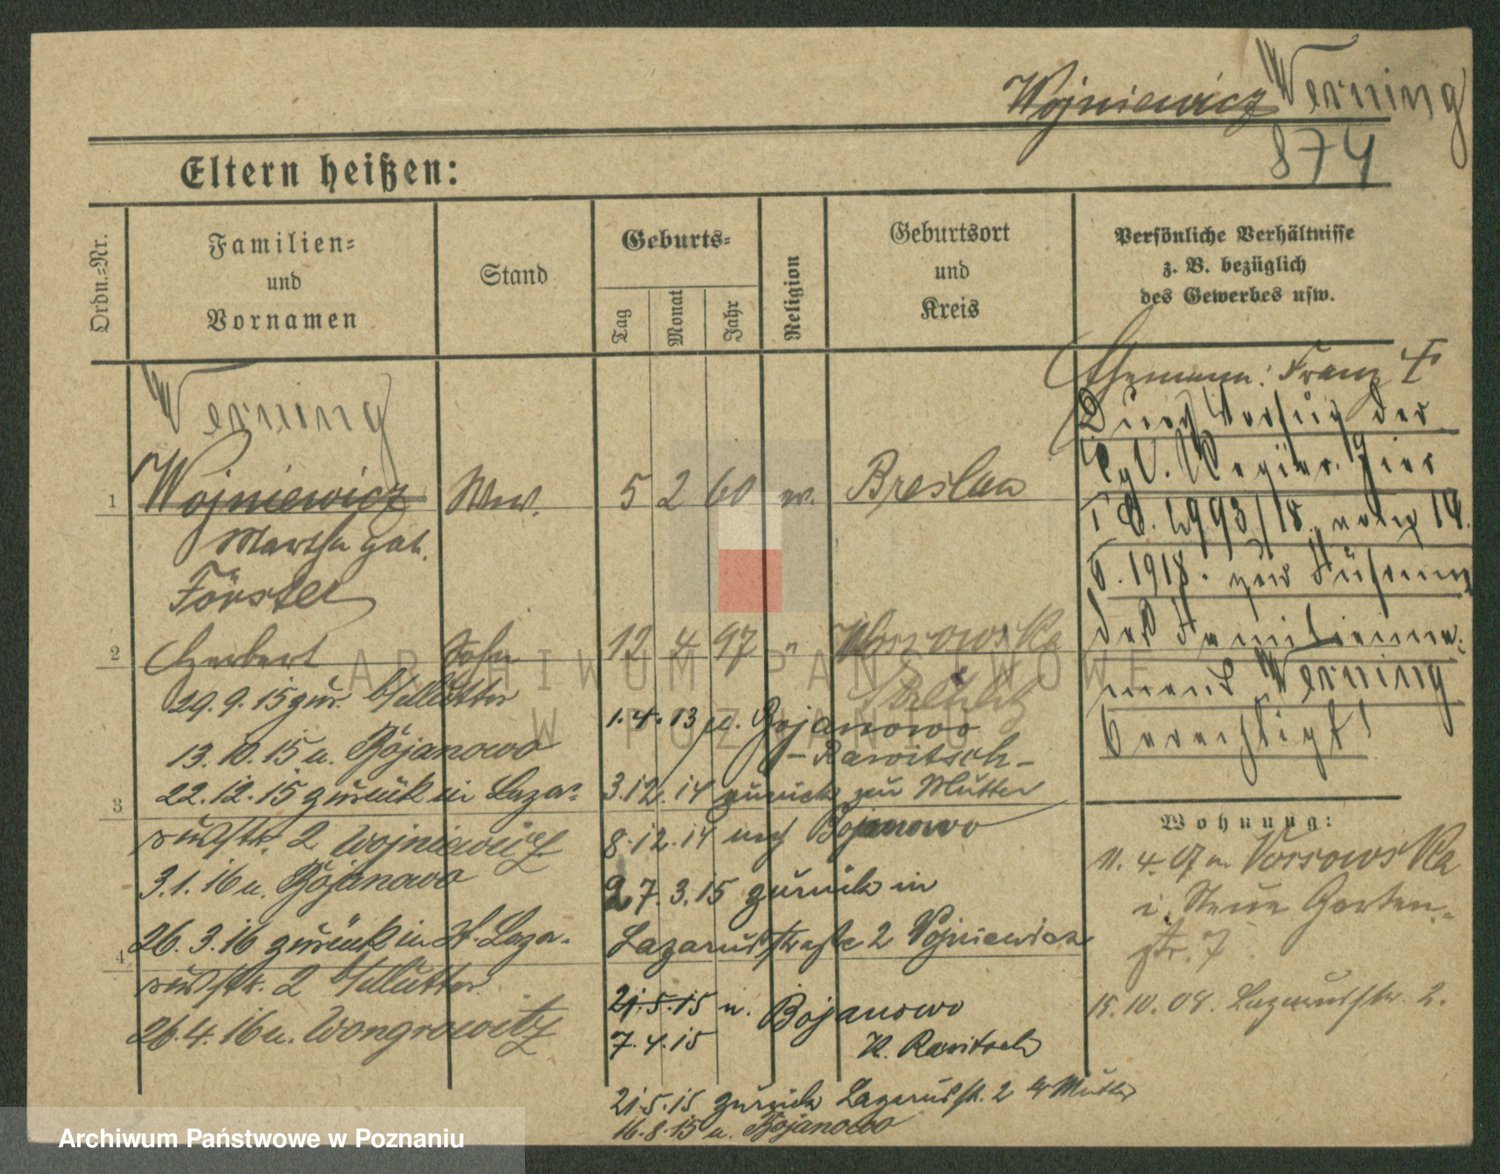 Wojniewicz Werning
874
Eltern heißen:
Ordn.-Nr.
Familien-
und
Vornamen
Stand
Geburts-
Tag
Monat
Jahr
Religion
Geburtsort
und
Kreis
Persönliche Verhältnisse
z. B. bezüglich
des Gewerbes usw.
Werning
1 Wojniewicz Ww. 5 2 60 Breslau
Martha geb.
Förster
2 Herbert Sohn 12 4 97 "
29.9.15 zur Mutter
13.10.15 n. Bojanowo
22.12.15 zurück in Laza-
3
russtr. 2 Wojniewicz
3.1.16 n. Bojanowo
26.3.16 zurück in Laza-
4
russtr. 2 Mutter
26.4.16 n. Wongrowitz
1.4.13 Bojanowo
- Rawitsch -
3.12.14 zurück zu Mutter
8.12.14 nach Bojanowo
27.3.15 zurück in
Lazarusstraße 2 Wojniewicz
21.5.15 n. Bojanowo
7.4.15 K. Rawitsch
21.5.15 zurück Lazarusstr. 2 Mutter
16.8.15 n. Bojanowo
Ehemann: Franz
Durch Verfüg. der
Kgl. Regier. hier
14.
1918. zur Führung
des Familienna-
mens Werning
berechtigt!
Wohnung:
11.4.
i. Neue Garten-
str. 7
15.10.08. Lazarusstr. 2.
ARCHIWUM PAŃSTWOWE
W POZNANIU
Archiwum Państwowe w Poznaniu